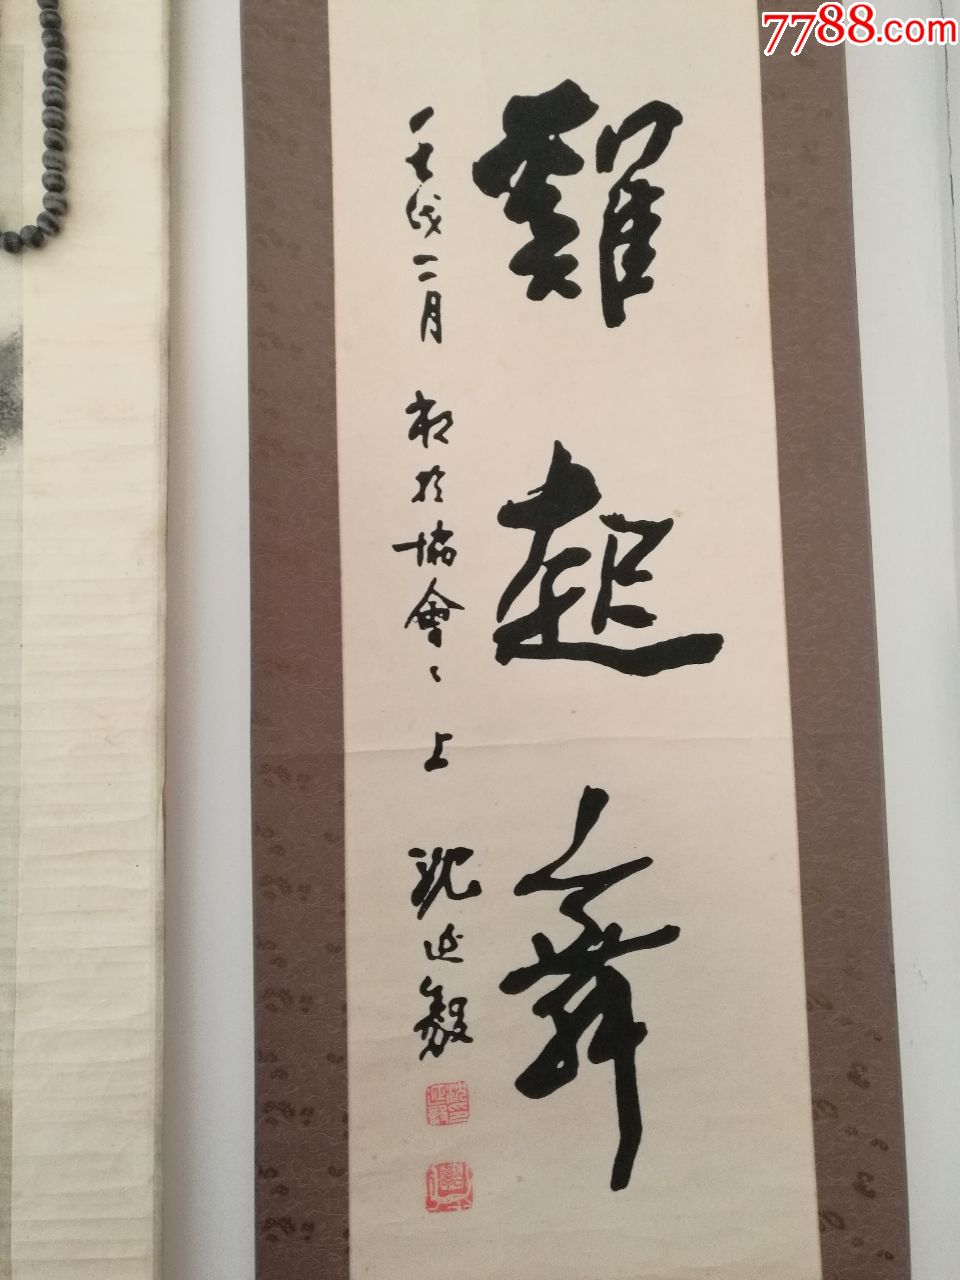 雞起舞
壬戌二月 於協會〻上 沈延毅
7788.com